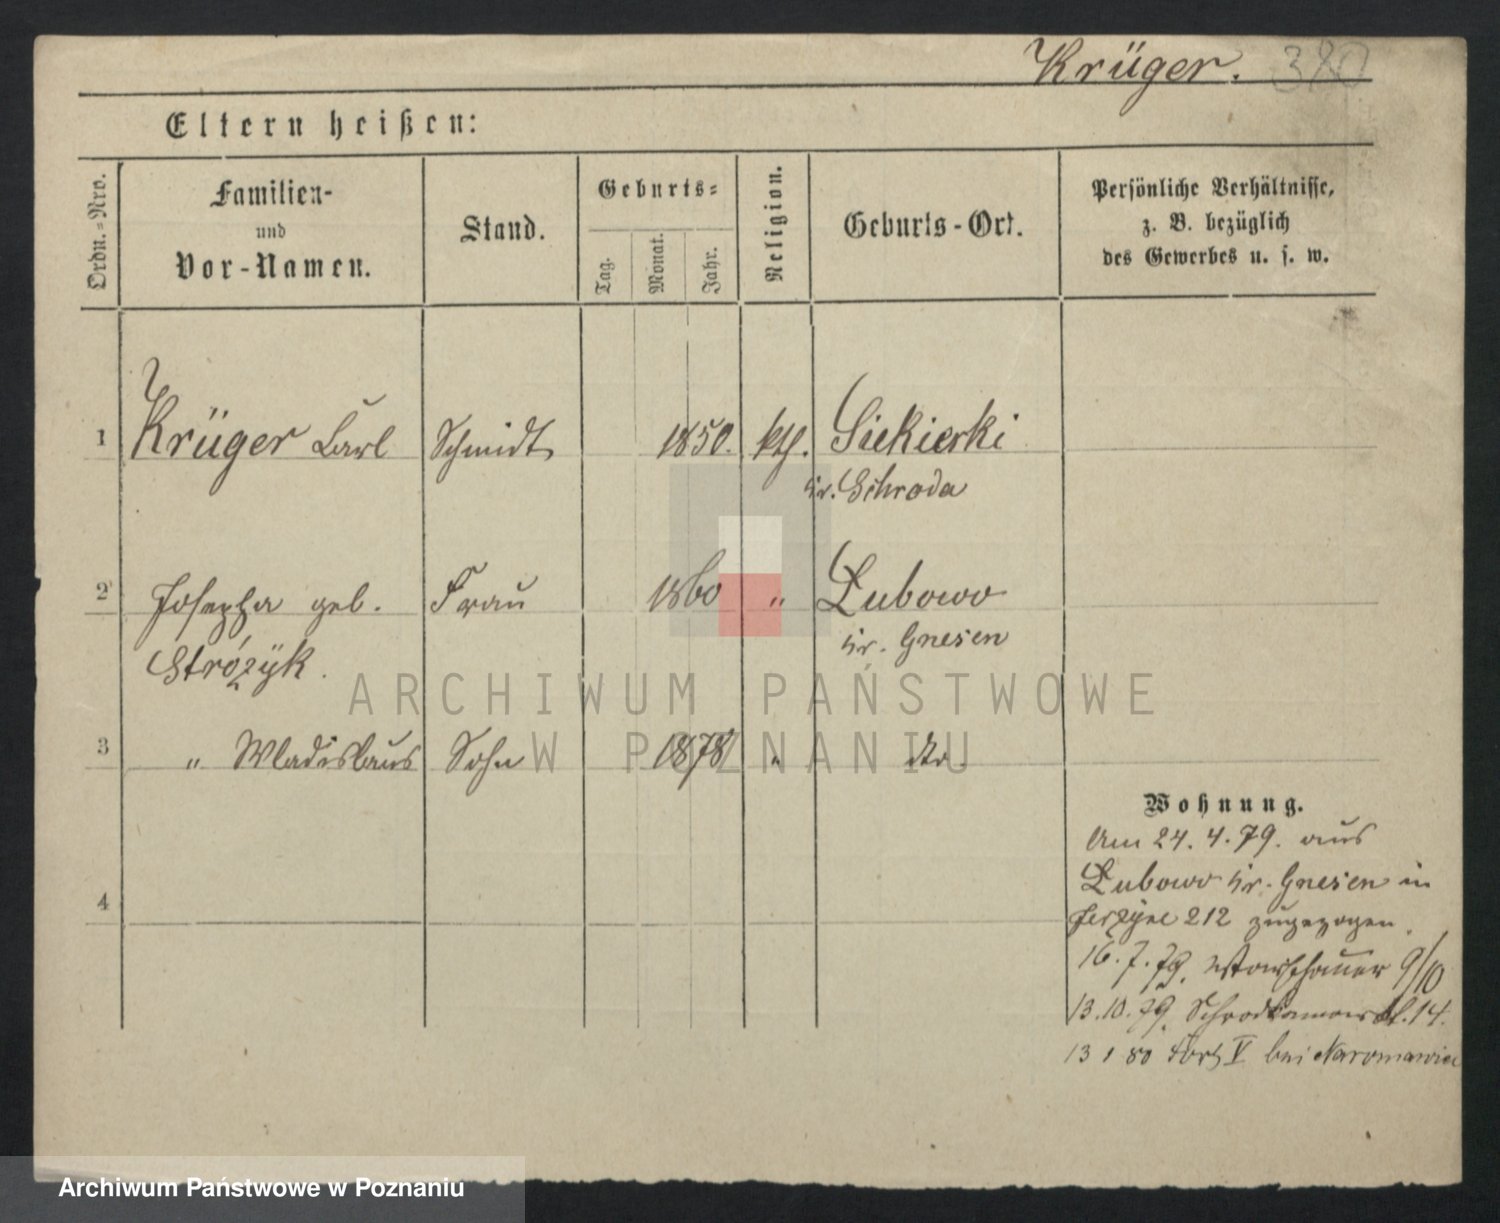 Krüger. 380
Eltern heißen:
Ordn.-Nro.
Familien-
und
Vor-Namen.
Stand.
Geburts-
Tag.
Monat.
Jahr.
Religion.
Geburts-Ort.
Persönliche Verhältnisse,
z. B. bezüglich
des Gewerbes u. s. w.
1 Krüger Carl Schmidt 1850. kth. Siekierki
Kr. Schroda
2 Josepha geb. Frau 1860 " Lubowo
Stróżyk. Kr. Gnesen
3 " Wladislaus Sohn 1878 " dto.
4
Wohnung.
Am 24. 4. 79. aus
Lubowo Kr. Gnesen in
Jerzyce 212 zugezogen.
16. 7. 79. Warschauer 9/10
13. 10. 79. 14.
13 1 80 Fort V bei Naramowice
ARCHIWUM PAŃSTWOWE
W POZNANIU
Archiwum Państwowe w Poznaniu